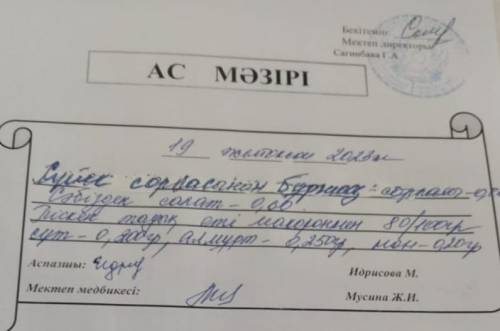 Бекітейін:
Мектеп директоры
Сагинбаева Г.А
АС МӘЗІРІ
19 желтоқсан 2023ж
сорпасынан
Сәбізден салат - 0,06
тауық еті макаронмен 80/100гр
сүт - 0,200гр, алмұрт - 0,250гр, нан - 0,20гр
Аспазшы: Идрисова М.
Мектеп медбикесі: Мусина Ж.И.